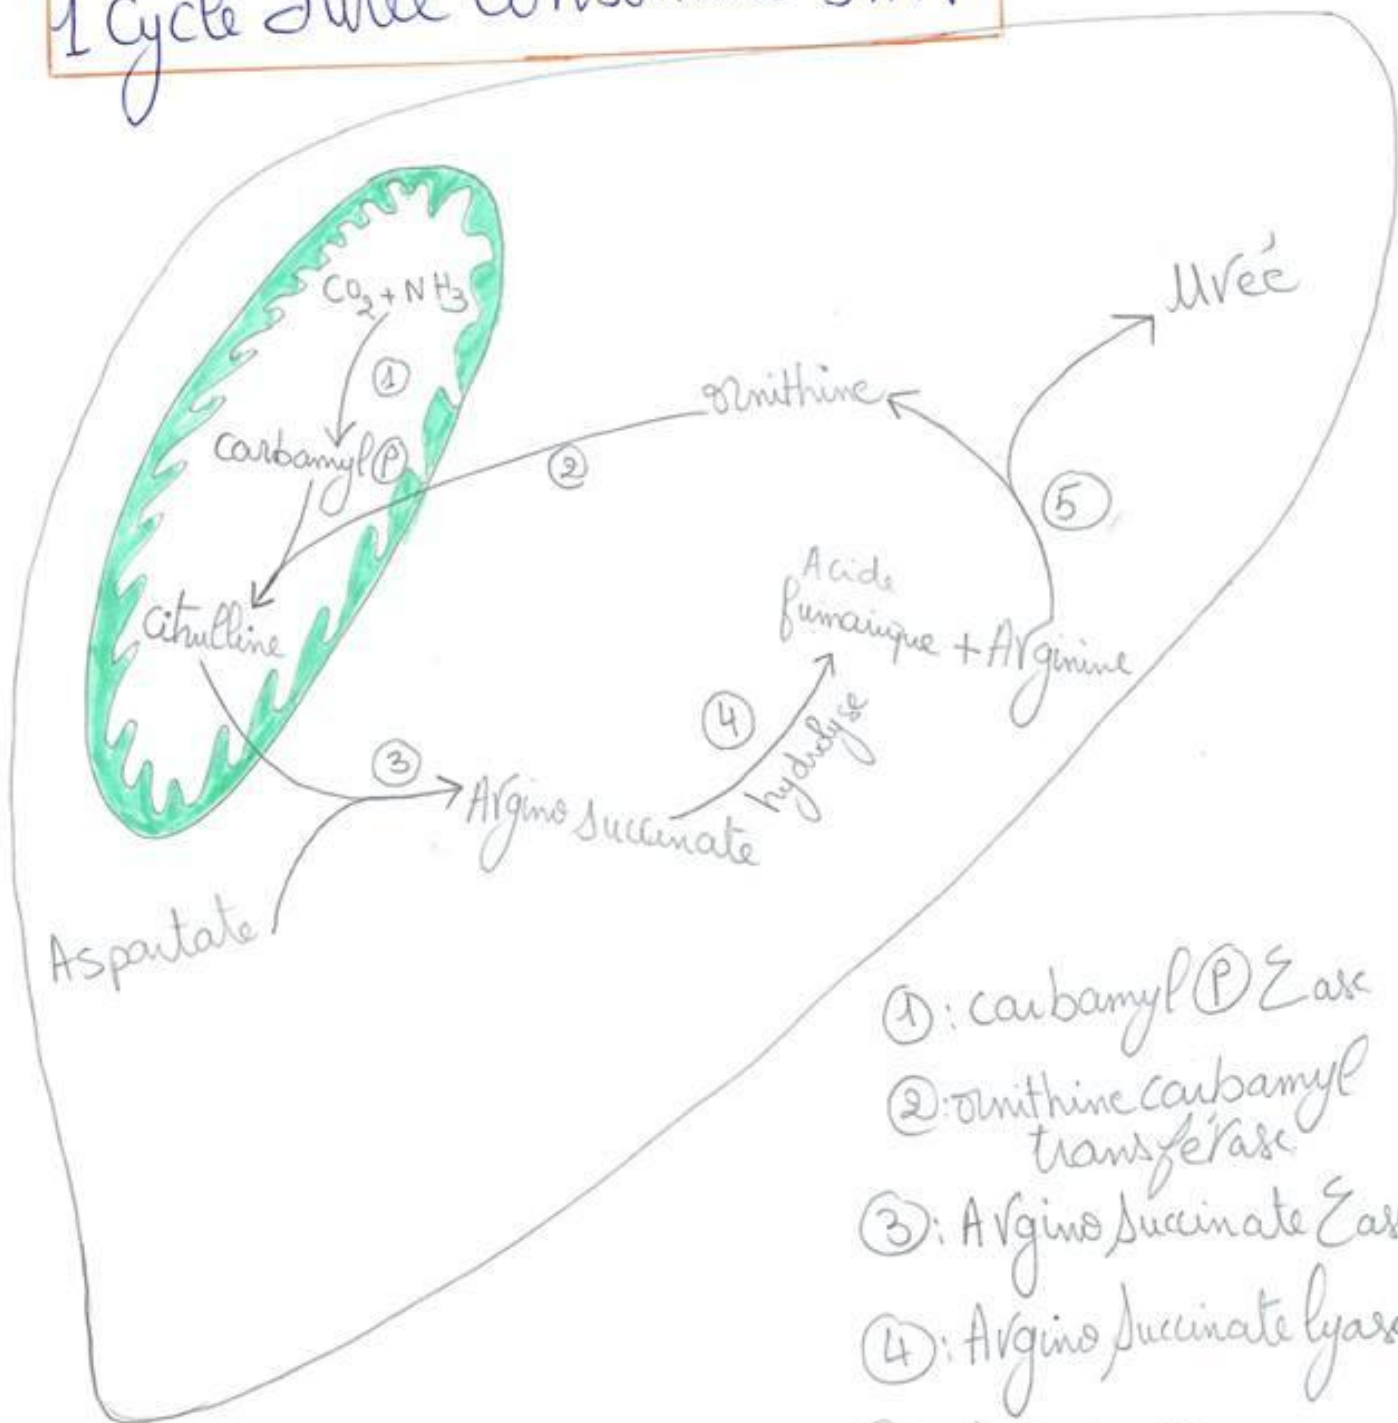 1 Cycle d'urée consomme
CO₂ + NH₃
①
carbamyl Ⓟ
②
ornithine
Urée
⑤
Citrulline
Acide
fumarique + Arginine
④
hydrolyse
③
Argino succinate
Aspartate
①: carbamyl Ⓟ Σase
②: ornithine carbamyl
transférase
③: Argino succinate Σas
④: Argino succinate lyase